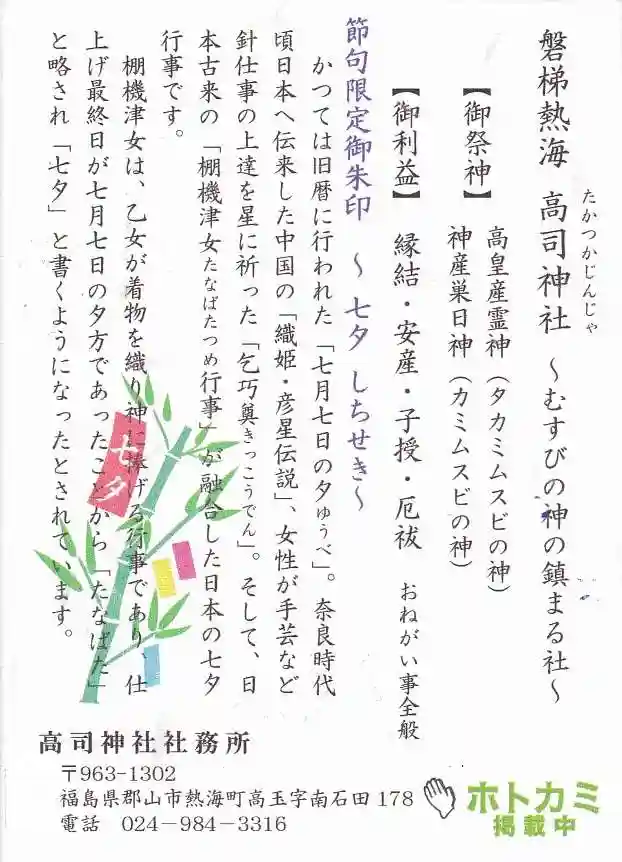 磐梯熱海 高司神社 ～むすびの神の鎮まる社～
たかつかじんじゃ
【御祭神】 高皇産霊神(タカミムスビの神)
神産巣日神(カミムスビの神)
【御利益】 縁結・安産・子授・厄祓 おねがい事全般
節句限定御朱印 ～ 七夕 しちせき～
かつては旧暦に行われた「七月七日の夕ゅうべ」。奈良時代
頃日本へ伝来した中国の「織姫・彦星伝説」、女性が手芸など
針仕事の上達を星に祈った「乞巧奠きっこうでん」。そして、日
本古来の「棚機津女たなばたつめ行事」が融合した日本の七夕
行事です。
棚機津女は、乙女が着物を織り神に捧げる行事であり、仕
上げ最終日が七月七日の夕方であったことから「たなばた」
と略され「七夕」と書くようになったとされています。
七夕
高司神社社務所
〒963-1302
福島県郡山市熱海町高玉字南石田178
電話 024-984-3316
ホトカミ
掲載中